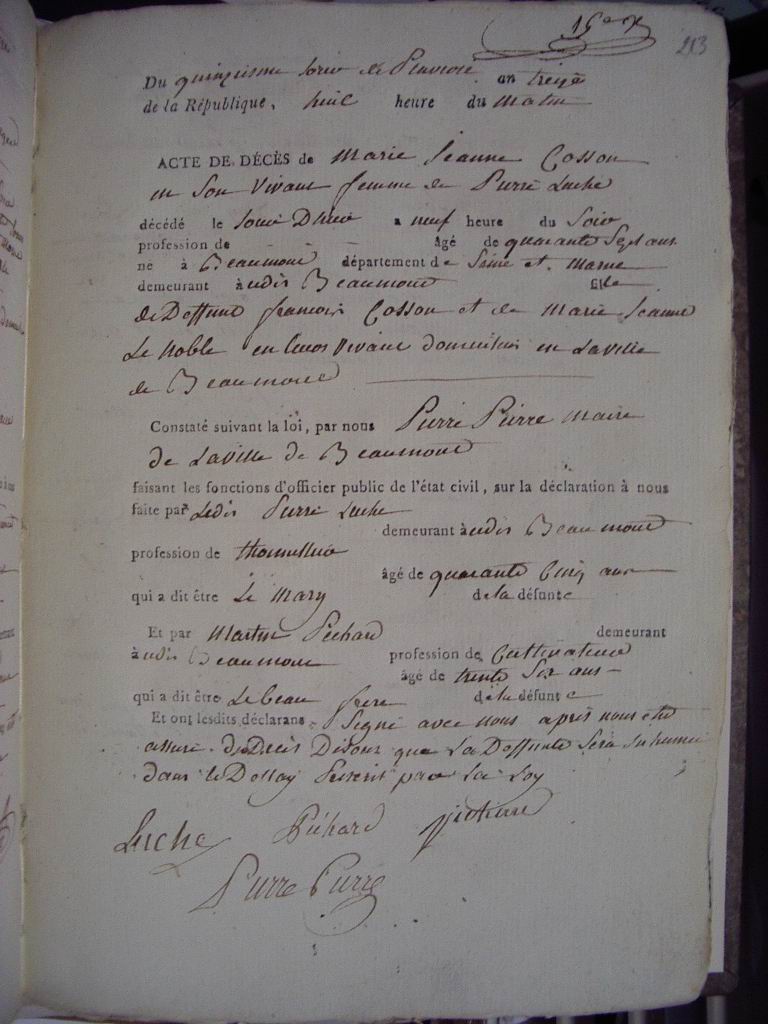 16e
213
Du quinzieme jour de Pluviose an treize
de la République, huit heure du matin
ACTE DE DÉCÈS de Marie Jeanne Cosson
en son vivant femme de Pierre Luche
décédé le jour D'hier a neuf heure du Soir
profession de âgé de quarante Sept ans
né à Beaumont département de Seine et Marne
demeurant à udis Beaumont fille
de Deffunt francois Cosson et de Marie Jeanne
Le Noble en leurs vivant domicilies en La ville
de Beaumont
Constaté suivant la loi, par nous Pierre Pierre maire
de La ville de Beaumont
faisant les fonctions d'officier public de l'état civil, sur la déclaration à nous
faite par Ledis Pierre Luche
demeurant à udis Beaumont
profession de
âgé de quarante Cinq ans
qui a dit être Le Mary de la défunte
Et par Martin Pichard demeurant
à udis Beaumont profession de Cultivateur
âgé de trente Six ans
qui a dit être Le beau frere de la défunte
Et ont lesdits déclarans Signé avec nous apres nous etre
assuré du Deces que La Deffunte Sera Inhumée
dans le Dellay Prescrit par La Loy
Luche Pichard
Pierre Pierre